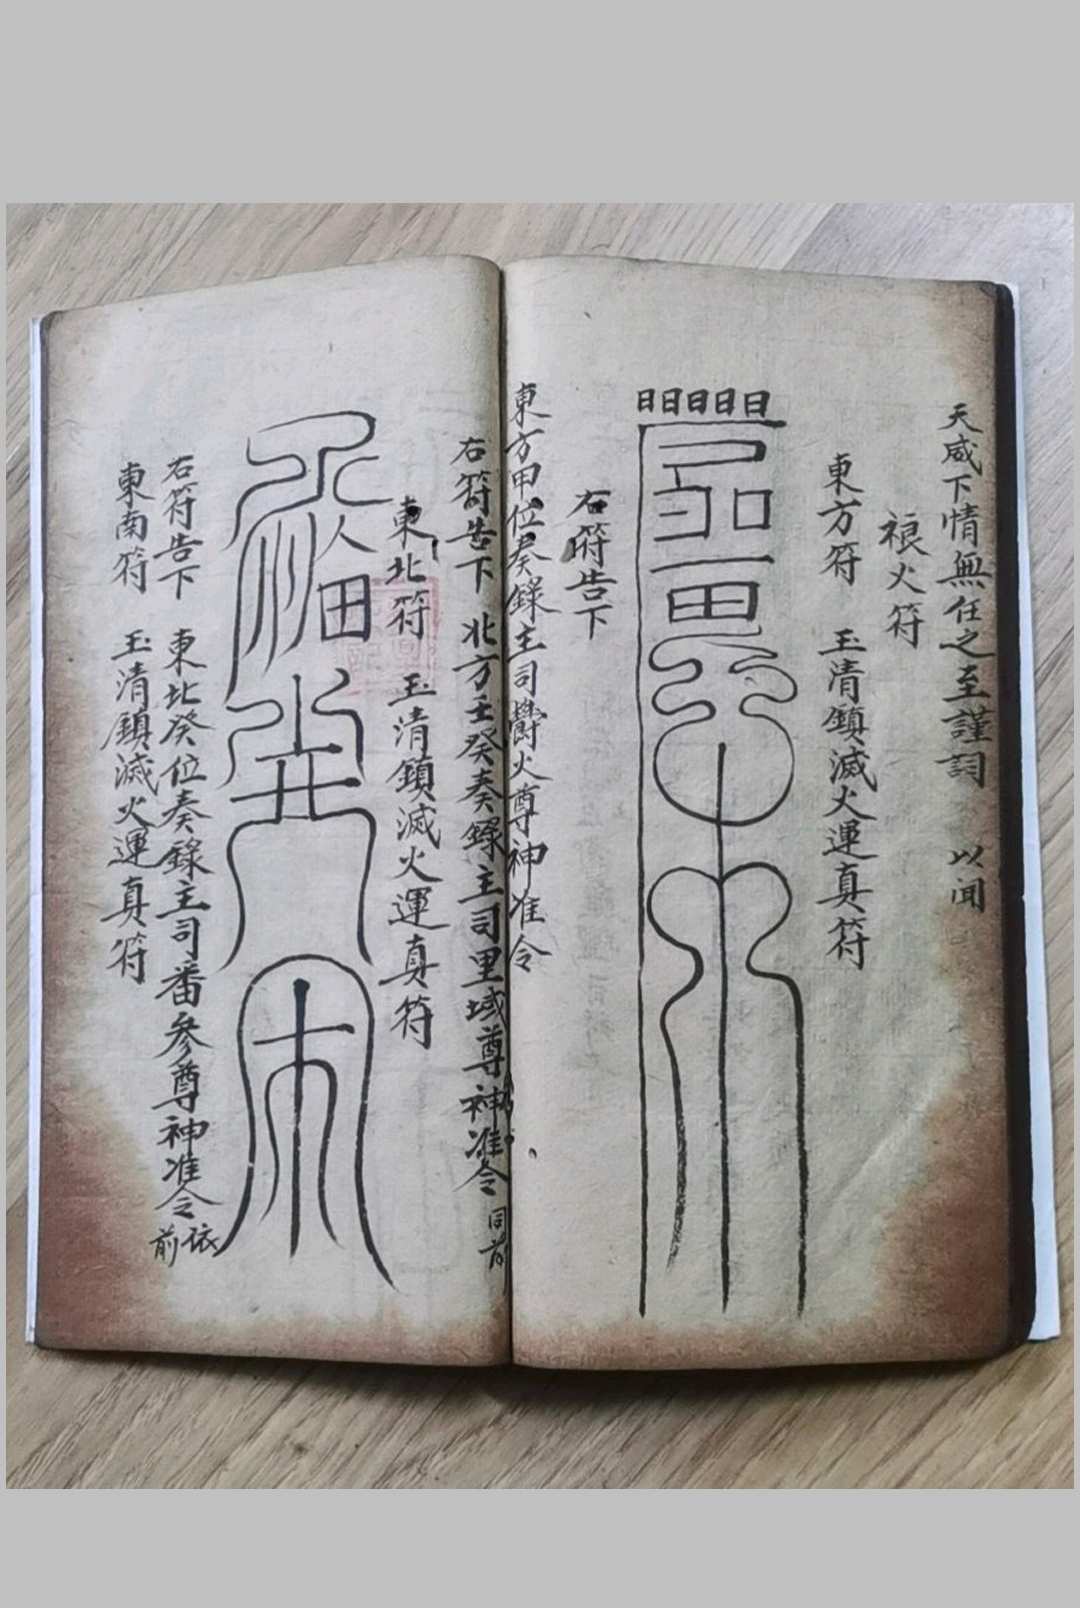 天威下情無任之至謹詞 以聞
火符
東方符 玉清鎮滅火運真符
日日日日日
右符告下
東方甲位奏錄主司欝火尊神准令
右符告下 北方壬癸奏錄主司里域尊神准令 同前
東北符 玉清鎮滅火運真符
右符告下 東北癸位奏錄主司番參尊神准令 依前
東南符 玉清鎮滅火運真符